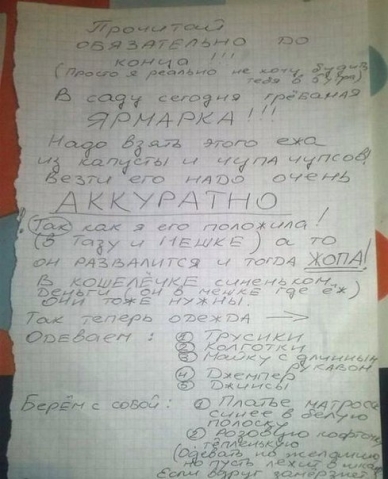 Прочитай
ОБЯЗАТЕЛЬНО ДО
конца!!!
(Просто я реально не хочу будить
тебя в 5 утра)
В саду сегодня грёбаная
ЯРМАРКА!!!
Надо взять этого ежа
из капусты и чупа чупсов!
Везти его НАДО очень
АККУРАТНО
!(Так) как я его положила!
(В тазу и МЕШКЕ) а то
он РАЗВАЛИТСЯ и тогда ЖОПА!
В кошелёчке синеньком
деньги (он в мешке где ёж)
они тоже нужны.
Так теперь одежда →
Одеваем: ① Трусики
② Колготки
③ Майку с длинным
рукавом
④ Джемпер
⑤ Джинсы
Берём с собой: ① Платье матроса
синее в белую
полоску
② Розовую кофтону
тёпленькую
(Одевать по желанию
но пусть лежит в шкаф
Если вдруг замёрзнет)